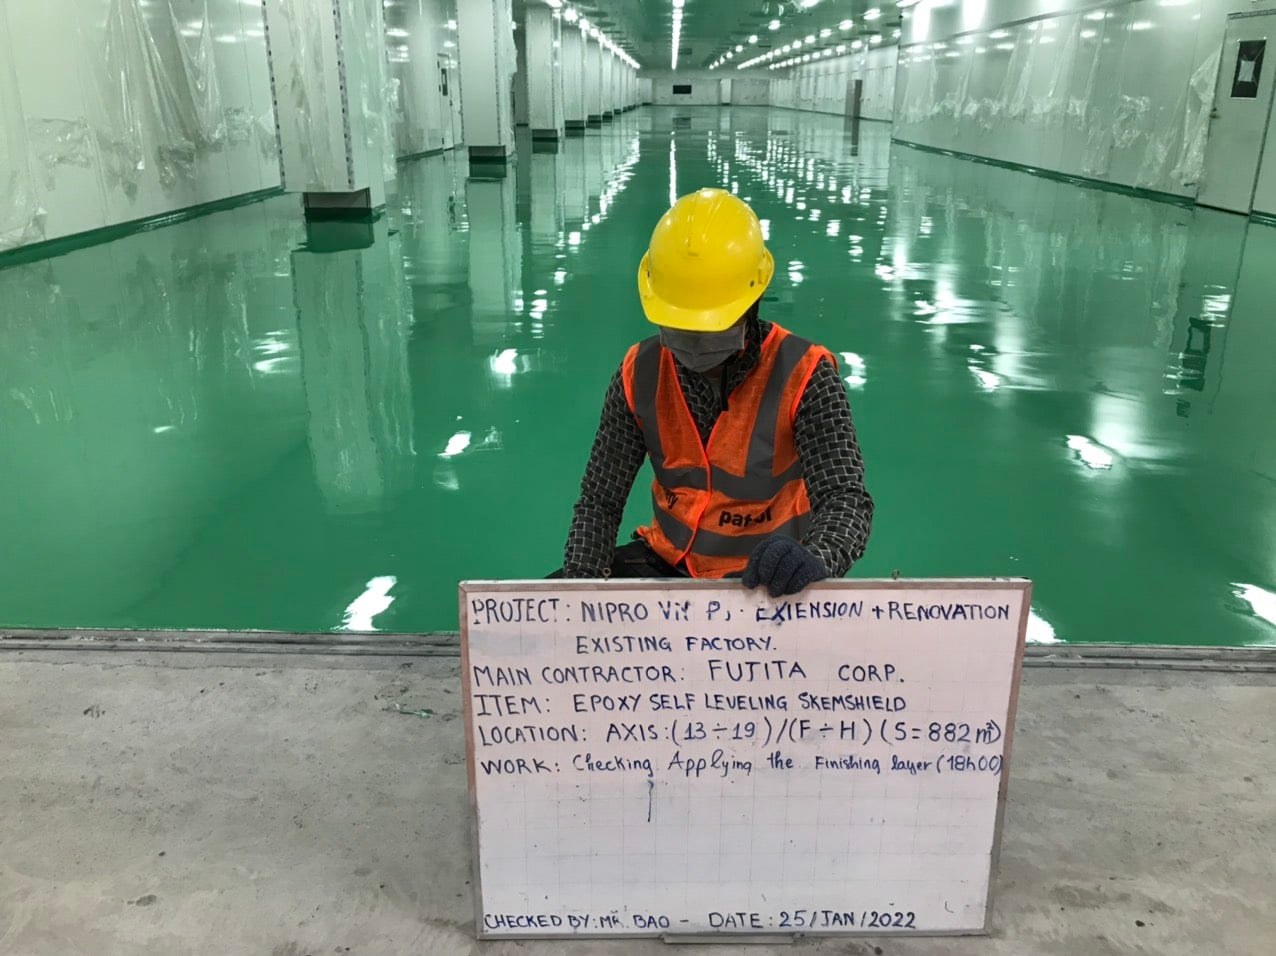 PROJECT: NIPRO EXTENSION + RENOVATION
EXISTING FACTORY.
MAIN CONTRACTOR: FUJITA CORP.
ITEM: EPOXY SELF LEVELING SKEMSHIELD
LOCATION: AXIS:(13÷19)/(F÷H)(S=882m²)
WORK: Checking Applying the Finishing layer (18h00)
CHECKED BY: MR. BAO - DATE: 25/JAN/2022